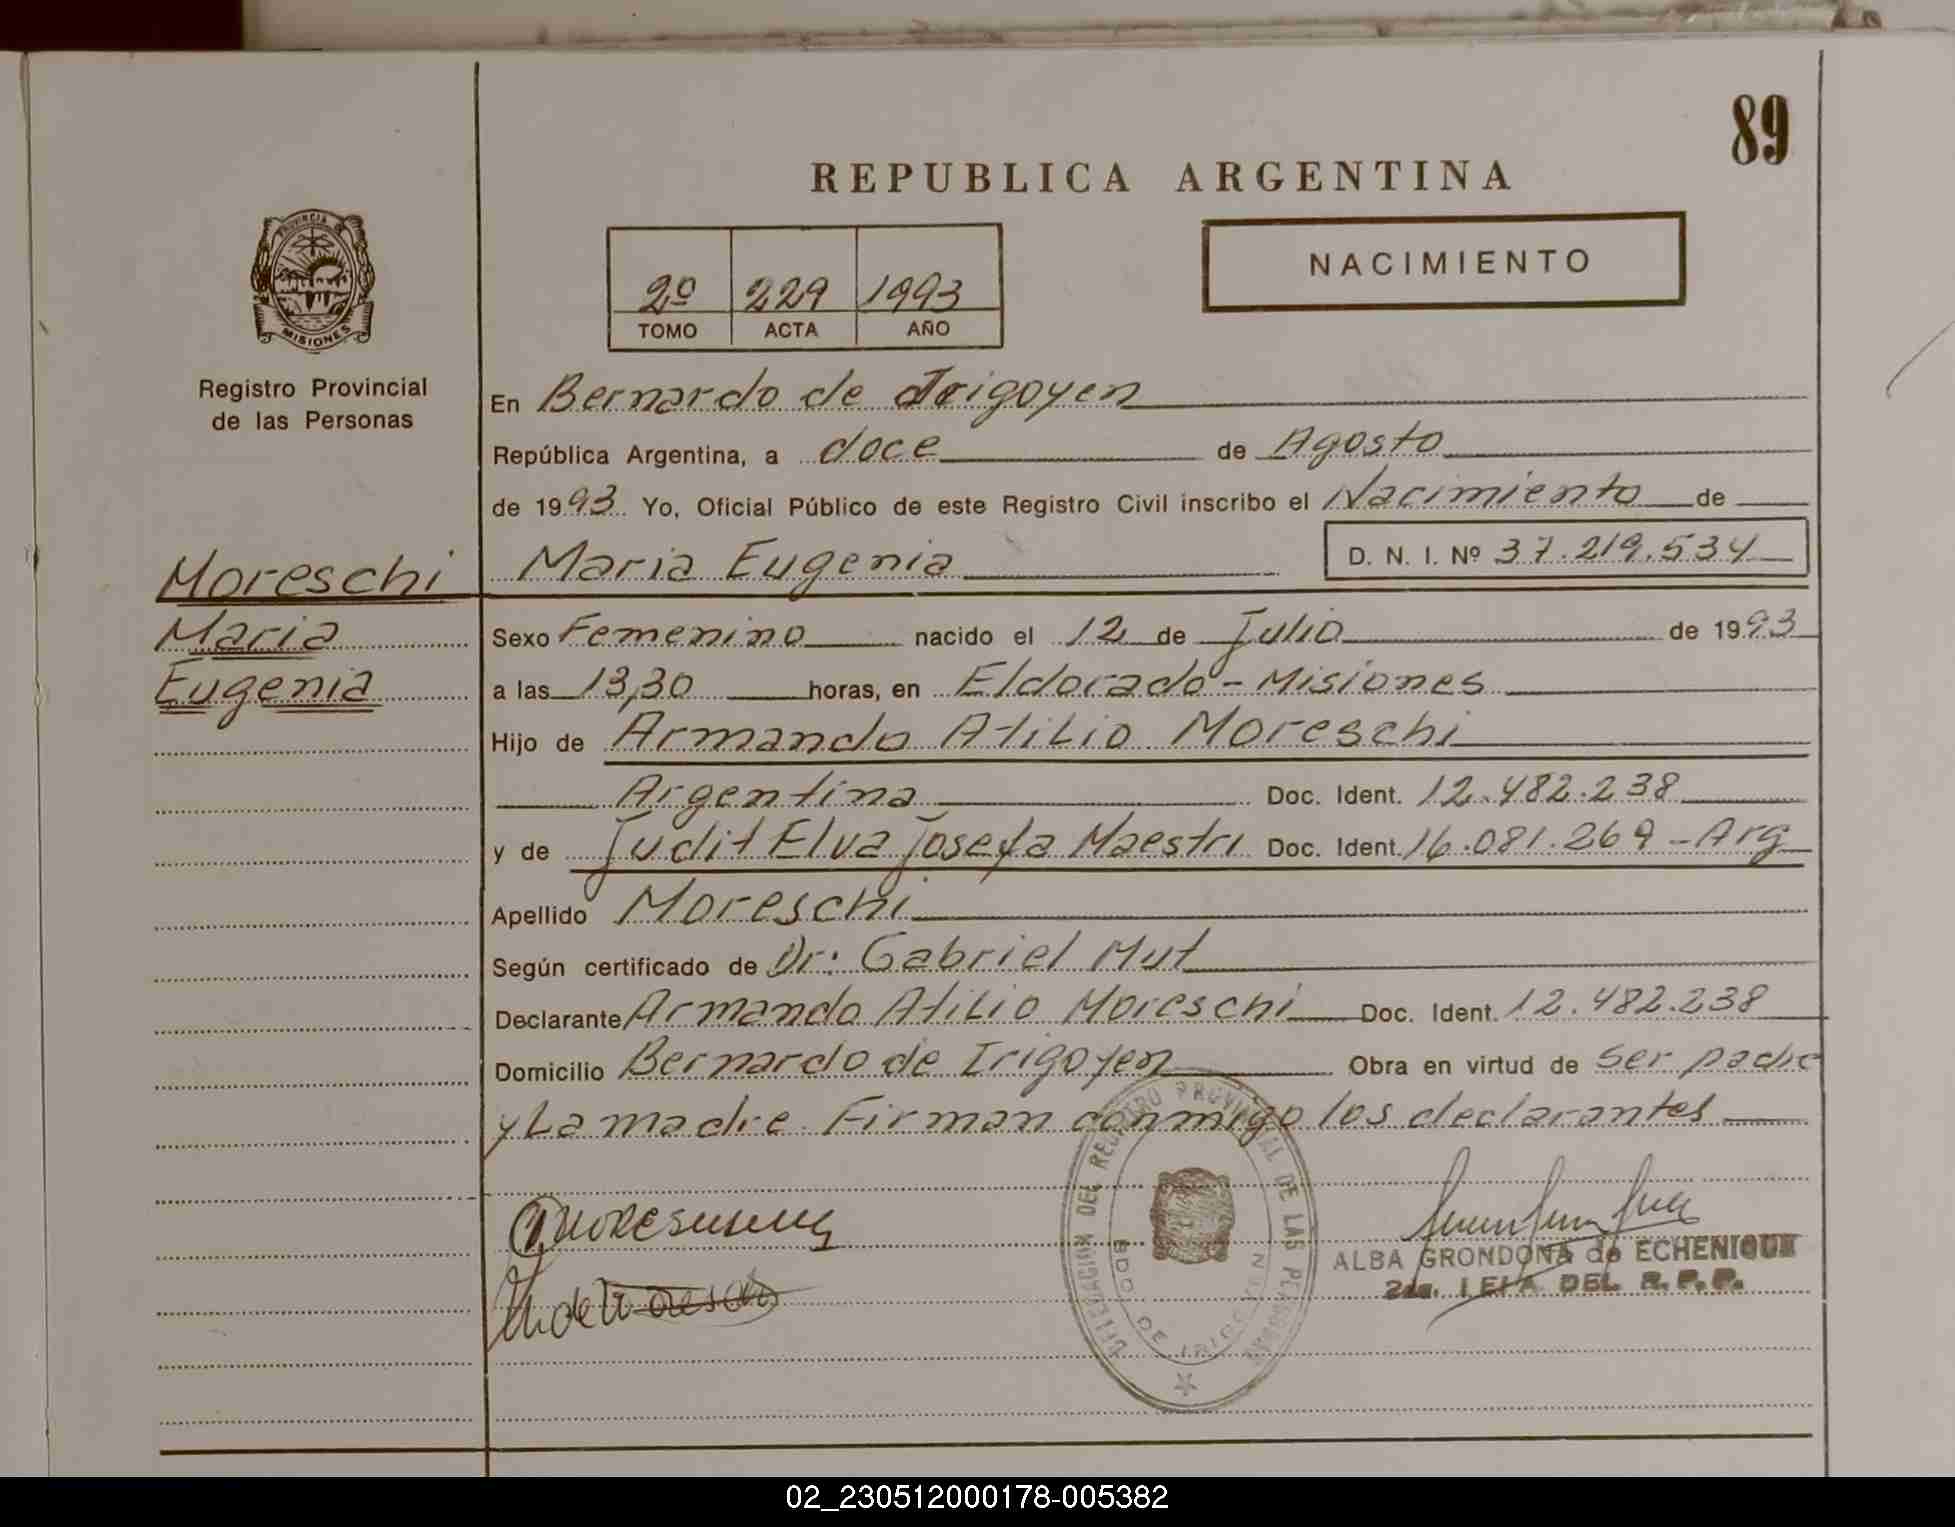 89
REPUBLICA ARGENTINA
PROVINCIA
MISIONES
Registro Provincial
de las Personas
2º 229 1993
TOMO ACTA AÑO
NACIMIENTO
En Bernardo de Irigoyen
República Argentina, a doce de Agosto
de 1993 Yo, Oficial Público de este Registro Civil inscribo el Nacimiento de
Moreschi
Maria
Eugenia
Maria Eugenia D. N. I. Nº 37.219.534
Sexo Femenino nacido el 12 de Julio de 1993
a las 13,30 horas, en Eldorado - Misiones
Hijo de Armando Atilio Moreschi
Argentina Doc. Ident. 12.482.238
y de Judit Elva Josefa Maestri Doc. Ident. 16.081.269 - Arg
Apellido Moreschi
Según certificado de Dr: Gabriel Mut
Declarante Armando Atilio Moreschi Doc. Ident. 12.482.238
Domicilio Bernardo de Irigoyen Obra en virtud de ser padre
y La madre. Firman conmigo los declarantes
DELEGACION DEL REGISTRO PROVINCIAL DE LAS PERSONAS
BDO DE IRIGOYEN
ALBA GRONDONA de ECHENIQUE
2da. JEFA DEL R.P.P.
02_230512000178-005382